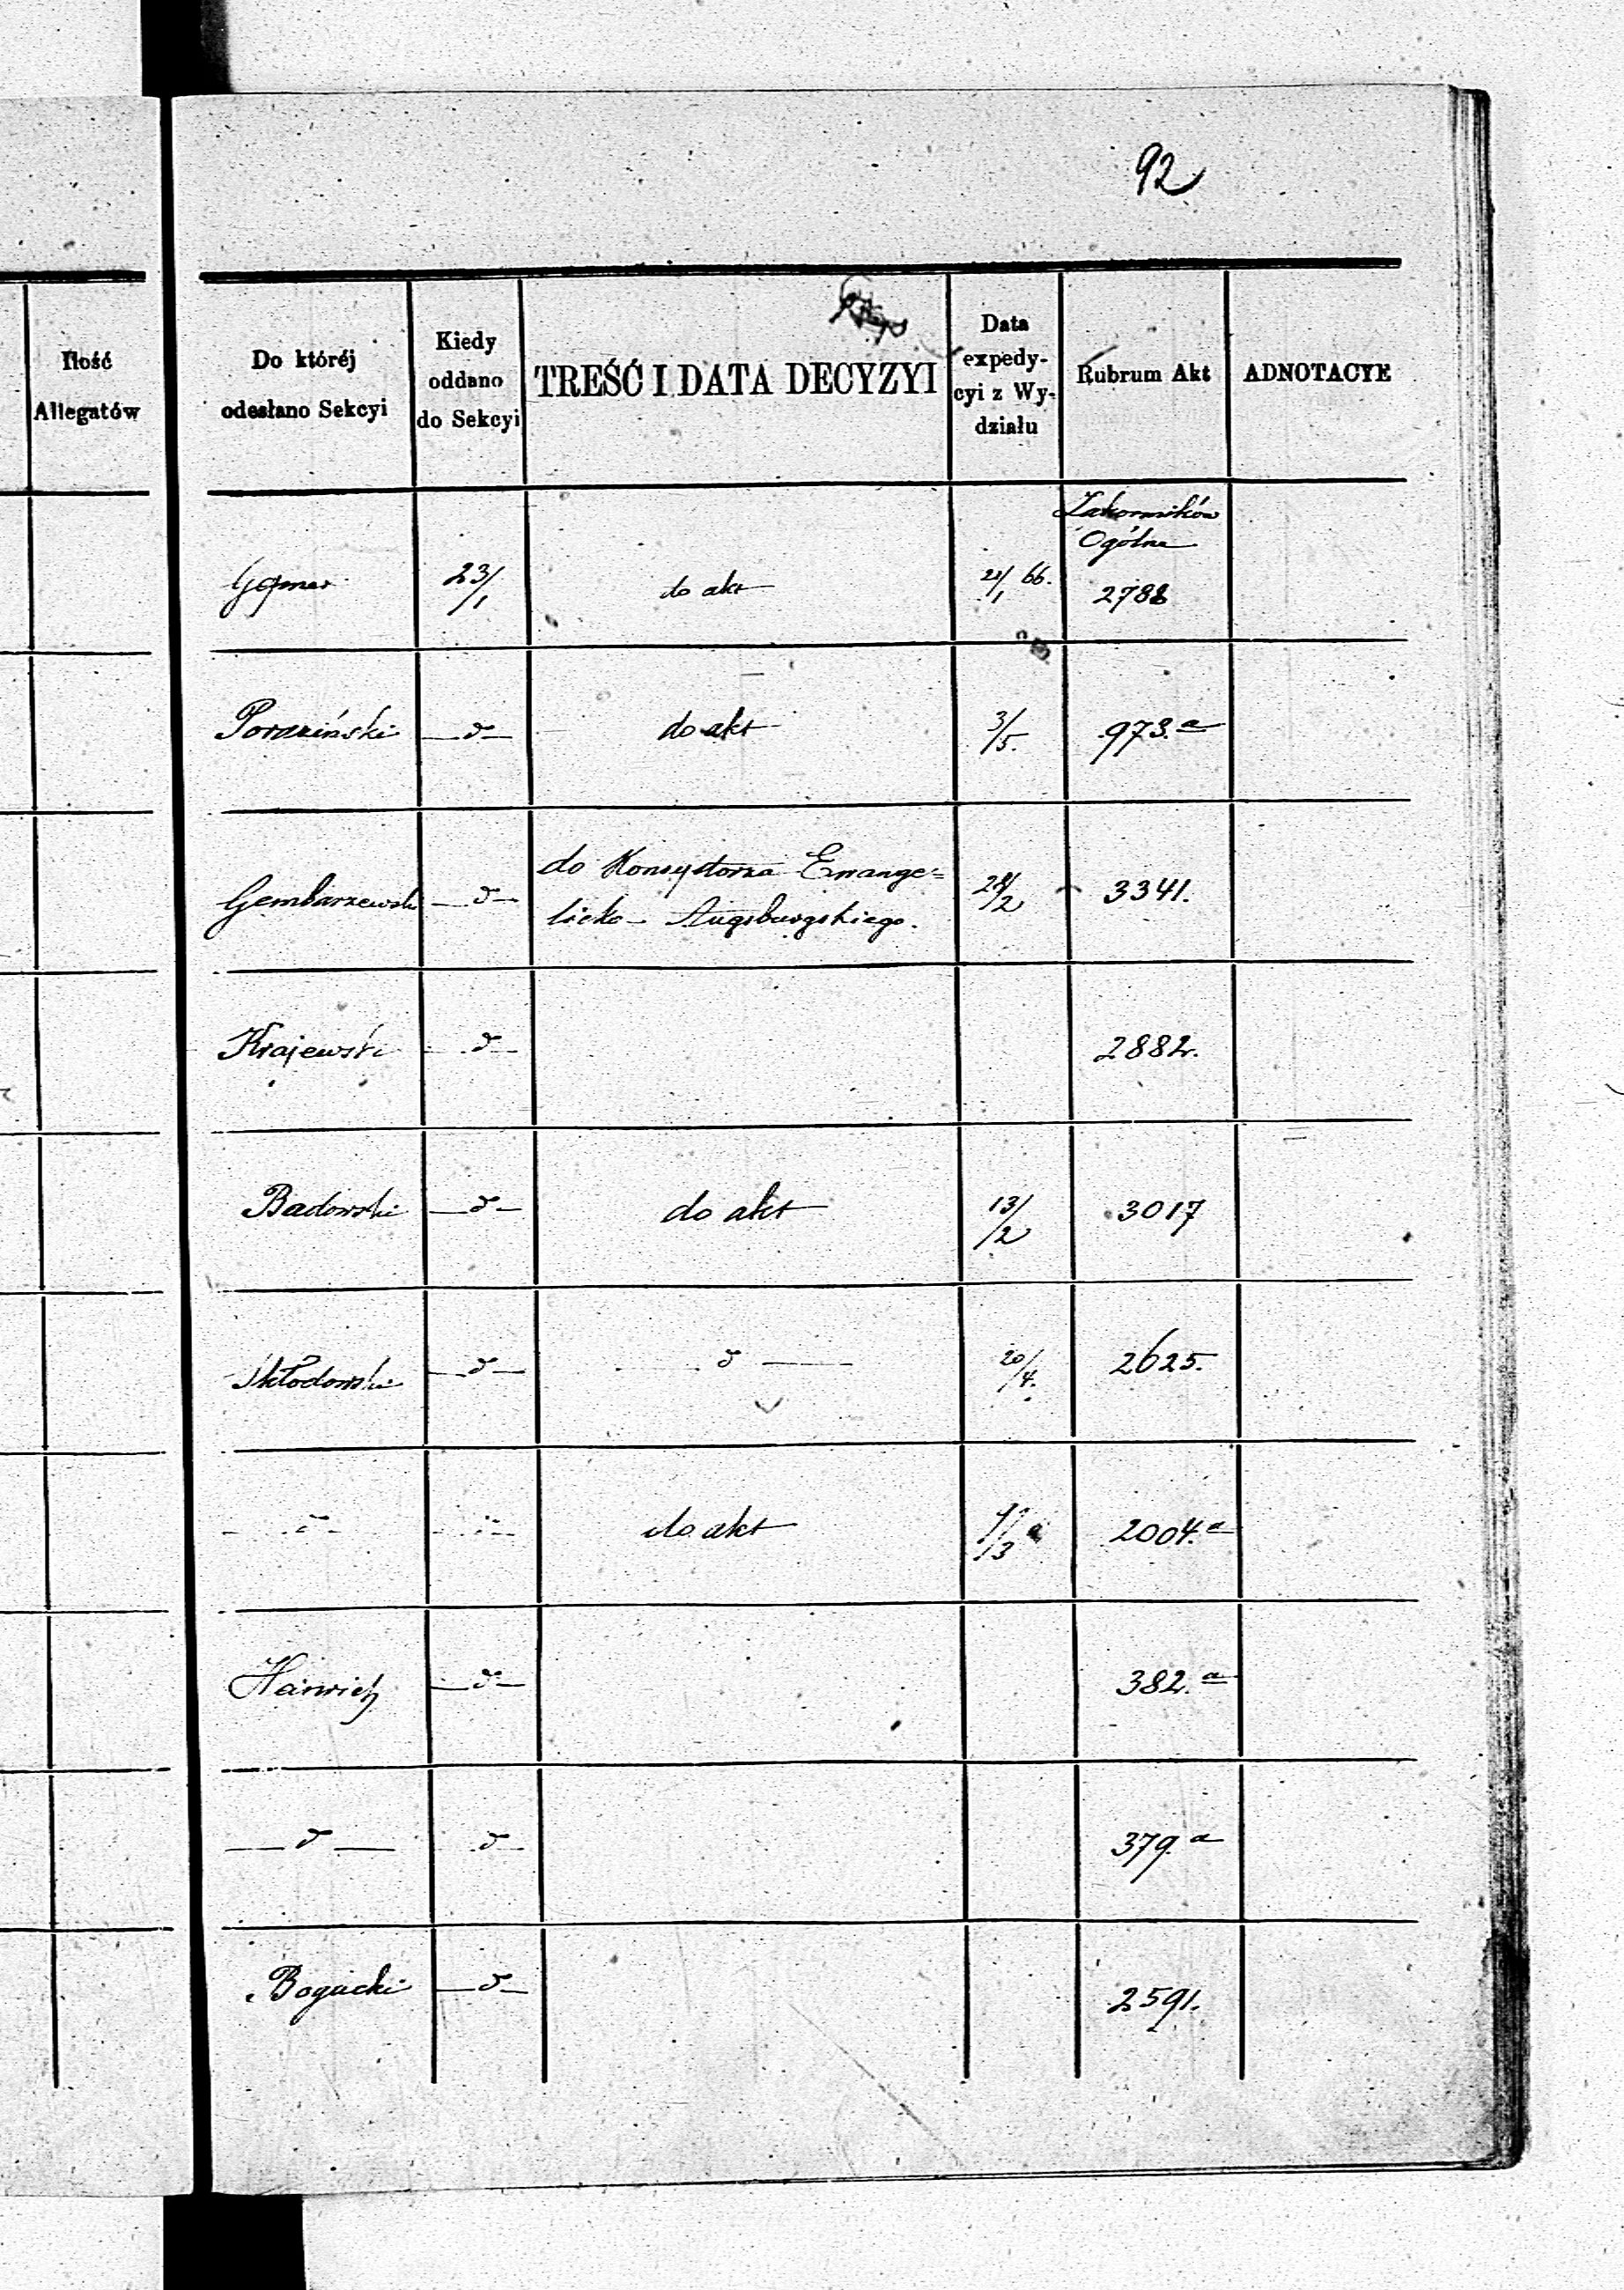 92
Ilość
Allegatów
Do któréj
odesłano Sekcyi
Kiedy
oddano
do Sekcyi
TREŚĆ I DATA DECYZYI
Data
expedy-
cyi z Wy-
działu
Rubrum Akt
ADNOTACYE
Zakonników
Ogólne
23/1 do akt 21/1 66. 2788
Poraziński —d— do akt 3/5. 973.a
do Konsystorza Ewange=
Gembarzewski —d— 28/2 3341.
licko- Augsburgskiego.
Krajewski —d— 2882.
Badowski —d— do akt 13/2 3017
Skłodowski —d— —d— 20/4. 2625.
—d— —d— do akt /3 2004.a
Heinrich —d— 382.a
—d— —d— 379.a
Bogucki —d— 2591.